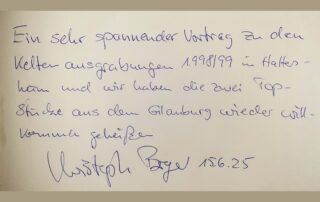 Ein sehr spannender Vortrag zu den
Keltenausgrabungen 1998/99 in Hatters-
heim und wir haben die zwei Top-
Stücke aus dem Glauburg wieder will-
kommen geheißen
Christoph 15.6.25